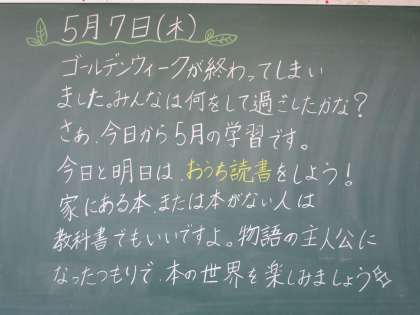 5月7日(木)
ゴールデンウィークが終わってしまい
ました。みんなは何をして過ごしたかな?
さぁ、今日から5月の学習です。
今日と明日は、おうち読書をしよう!
家にある本、または本がない人は
教科書でもいいですよ。物語の主人公に
なったつもりで、本の世界を楽しみましょう